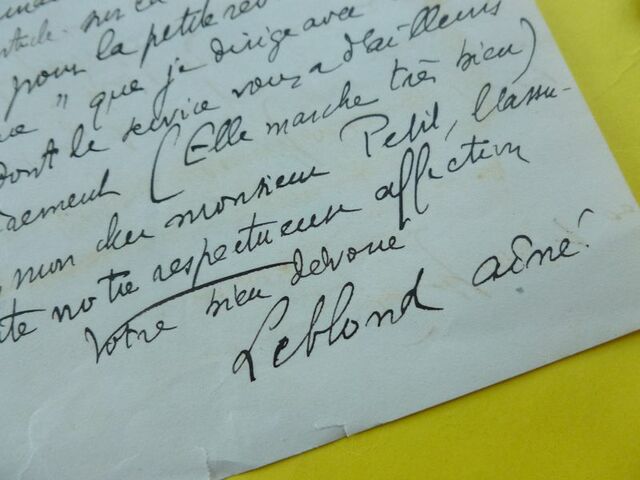 pour la petite rev
" que je dirige avec
dont le service vous a d'ailleurs
rement (Elle marche très bien)
, mon cher monsieur Petit, l'assu-
te notre respectueuse affection
Votre bien dévoué
Leblond aîné.